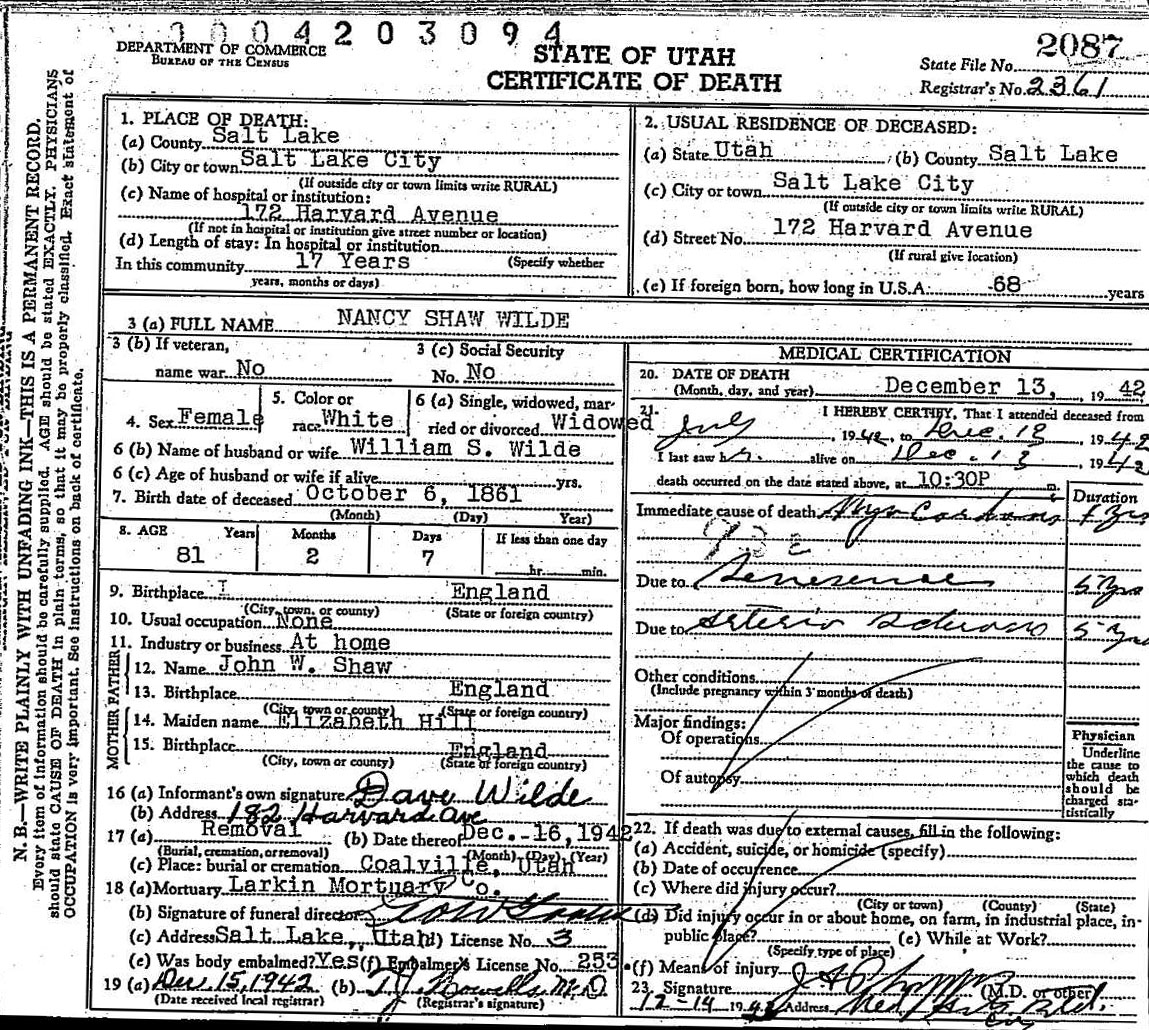 0004203094
DEPARTMENT OF COMMERCE
BUREAU OF THE CENSUS
STATE OF UTAH
CERTIFICATE OF DEATH
2087
State File No.
Registrar's No. 2361
N. B.—WRITE PLAINLY WITH UNFADING INK—THIS IS A PERMANENT RECORD.
Every item of information should be carefully supplied. AGE should be stated EXACTLY. PHYSICIANS
should state CAUSE OF DEATH in plain terms, so that it may be properly classified. Exact statement of
OCCUPATION is very important. See instructions on back of certificate.
1. PLACE OF DEATH:
(a) County Salt Lake
(b) City or town Salt Lake City
(If outside city or town limits write RURAL)
(c) Name of hospital or institution:
172 Harvard Avenue
(If not in hospital or institution give street number or location)
(d) Length of stay: In hospital or institution
In this community 17 Years (Specify whether
years, months or days)
2. USUAL RESIDENCE OF DECEASED:
(a) State Utah (b) County Salt Lake
(c) City or town Salt Lake City
(If outside city or town limits write RURAL)
(d) Street No. 172 Harvard Avenue
(If rural give location)
(e) If foreign born, how long in U.S.A. 68 years
3 (a) FULL NAME NANCY SHAW WILDE
3 (b) If veteran, name war No
3 (c) Social Security No. No
4. Sex Female
5. Color or race White
6 (a) Single, widowed, married or divorced Widowed
6 (b) Name of husband or wife William S. Wilde
6 (c) Age of husband or wife if alive yrs.
7. Birth date of deceased October 6, 1861
(Month) (Day) Year)
8. AGE Years Months Days If less than one day
81 2 7 hr. min.
9. Birthplace England
(City, town, or county) (State or foreign country)
10. Usual occupation None
11. Industry or business At home
FATHER
12. Name John W. Shaw
13. Birthplace England
(City, town or county) (State or foreign country)
MOTHER
14. Maiden name Elizabeth Hill
15. Birthplace England
(City, town or county) (State or foreign country)
16 (a) Informant's own signature Dave Wilde
(b) Address 182 Harvard Ave
17 (a) Removal (b) Date thereof Dec. 16, 1942
(Burial, cremation, or removal) (Month) (Day) (Year)
(c) Place: burial or cremation Coalville, Utah
18 (a) Mortuary Larkin Mortuary Co.
(b) Signature of funeral director
(c) Address Salt Lake, Utah (d) License No. 3
(e) Was body embalmed? Yes (f) Embalmer's License No. 253
19 (a) Dec 15, 1942 (b) T. J. Howells M.D
(Date received local registrar) (Registrar's signature)
MEDICAL CERTIFICATION
20. DATE OF DEATH
(Month, day, and year) December 13, 1942
21. I HEREBY CERTIFY, That I attended deceased from
July, 1942, to Dec. 13 1942
I last saw h alive on Dec. 13, 1942
death occurred on the date stated above, at 10:30P m.
Duration
Immediate cause of death
Due to Senescence 5 yrs
Due to Arterio Sclerosis 5 yrs
Other conditions
(Include pregnancy within 3 months of death)
Major findings:
Of operations
Of autopsy
Physician
Underline
the cause to
which death
should be
charged sta-
tistically
22. If death was due to external causes, fill in the following:
(a) Accident, suicide, or homicide (specify)
(b) Date of occurrence
(c) Where did injury occur?
(City or town) (County) (State)
(d) Did injury occur in or about home, on farm, in industrial place, in-
public place? (e) While at Work?
(Specify type of place)
(f) Means of injury
23. Signature (M.D. or other)
12-14 1942 Address Med Arts Bld.